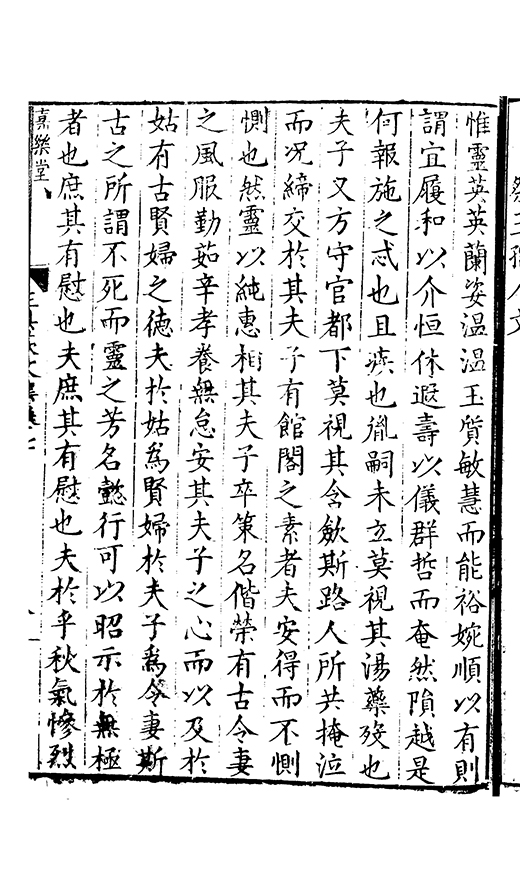 惟靈英英蘭姿温温玉質敏慧而能裕婉順以有則
謂宜履和以介恒休遐壽以儀群哲而奄然隕越是
何報施之忒也且疾也胤嗣未立莫視其湯藥殁也
夫子又方守官都下莫視其含斂斯路人所共掩泣
而况締交於其夫子有館閣之素者夫安得而不惻
惻也然靈以純惠相其夫子卒策名偕榮有古令妻
之風服勤茹辛孝養無怠安其夫子之心而以及於
姑有古賢婦之徳夫於姑爲賢婦於夫子爲令妻斯
古之所謂不死而靈之芳名懿行可以昭示於無極
者也庶其有慰也夫庶其有慰也夫於乎秋氣慘烈
嘉樂堂